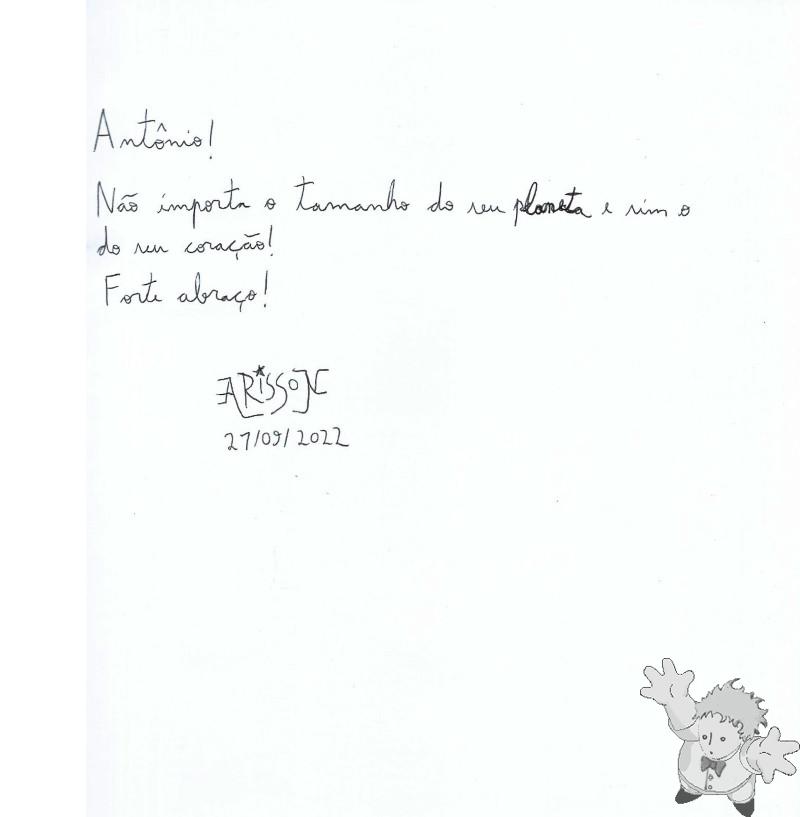 Antônio!
Não importa o tamanho do seu planeta e sim o
do seu coração!
Forte abraço!
ARISSON
27/09/2022